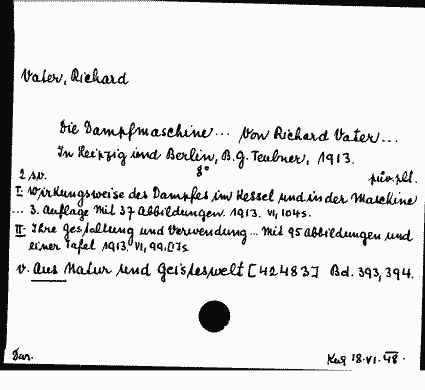 Vater, Richard
Die Dampfmaschine ... Von Richard Vater ...
In Leipzig und Berlin, B.G. Teubner, 1913.
2 sv. 8°
I. Wirkungsweise des Dampfes im Kessel und in der Maschine
... 3. Auflage Mit 37 Abbildungen. 1913. VI, 104 s.
II. Ihre Gestaltung und Verwendung ... Mit 95 Abbildungen und
einer Tafel 1913. VI, 99. [] s.
v. Aus Natur und Geisteswelt [42483] Bd. 393, 394.
Dar. 18.VI.48.